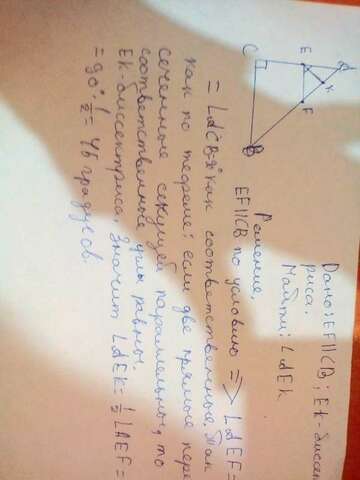 C
E
A
K
F
B
Дано: EF||CB; EK - биссек
риса.
Найти: LAEK
Решение.
EF||CB по условию => LAEF =
= LACB = 90° как соответственные. Так
как по теореме: если две прямые пере
сеченные секущей параллельны, то
соответственные углы равны.
EK - биссектриса. Значит LAEK = 1/2 LAEF =
= 90° · 1/2 = 45 градусов.